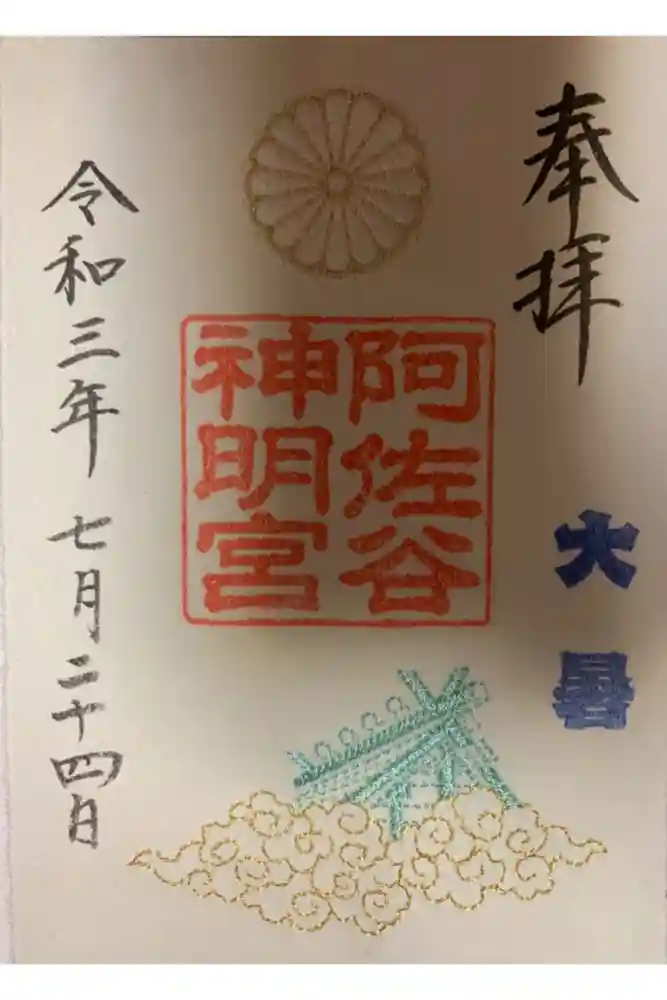 奉拝
大暑
阿佐谷
神明宮
令和三年七月二十四日